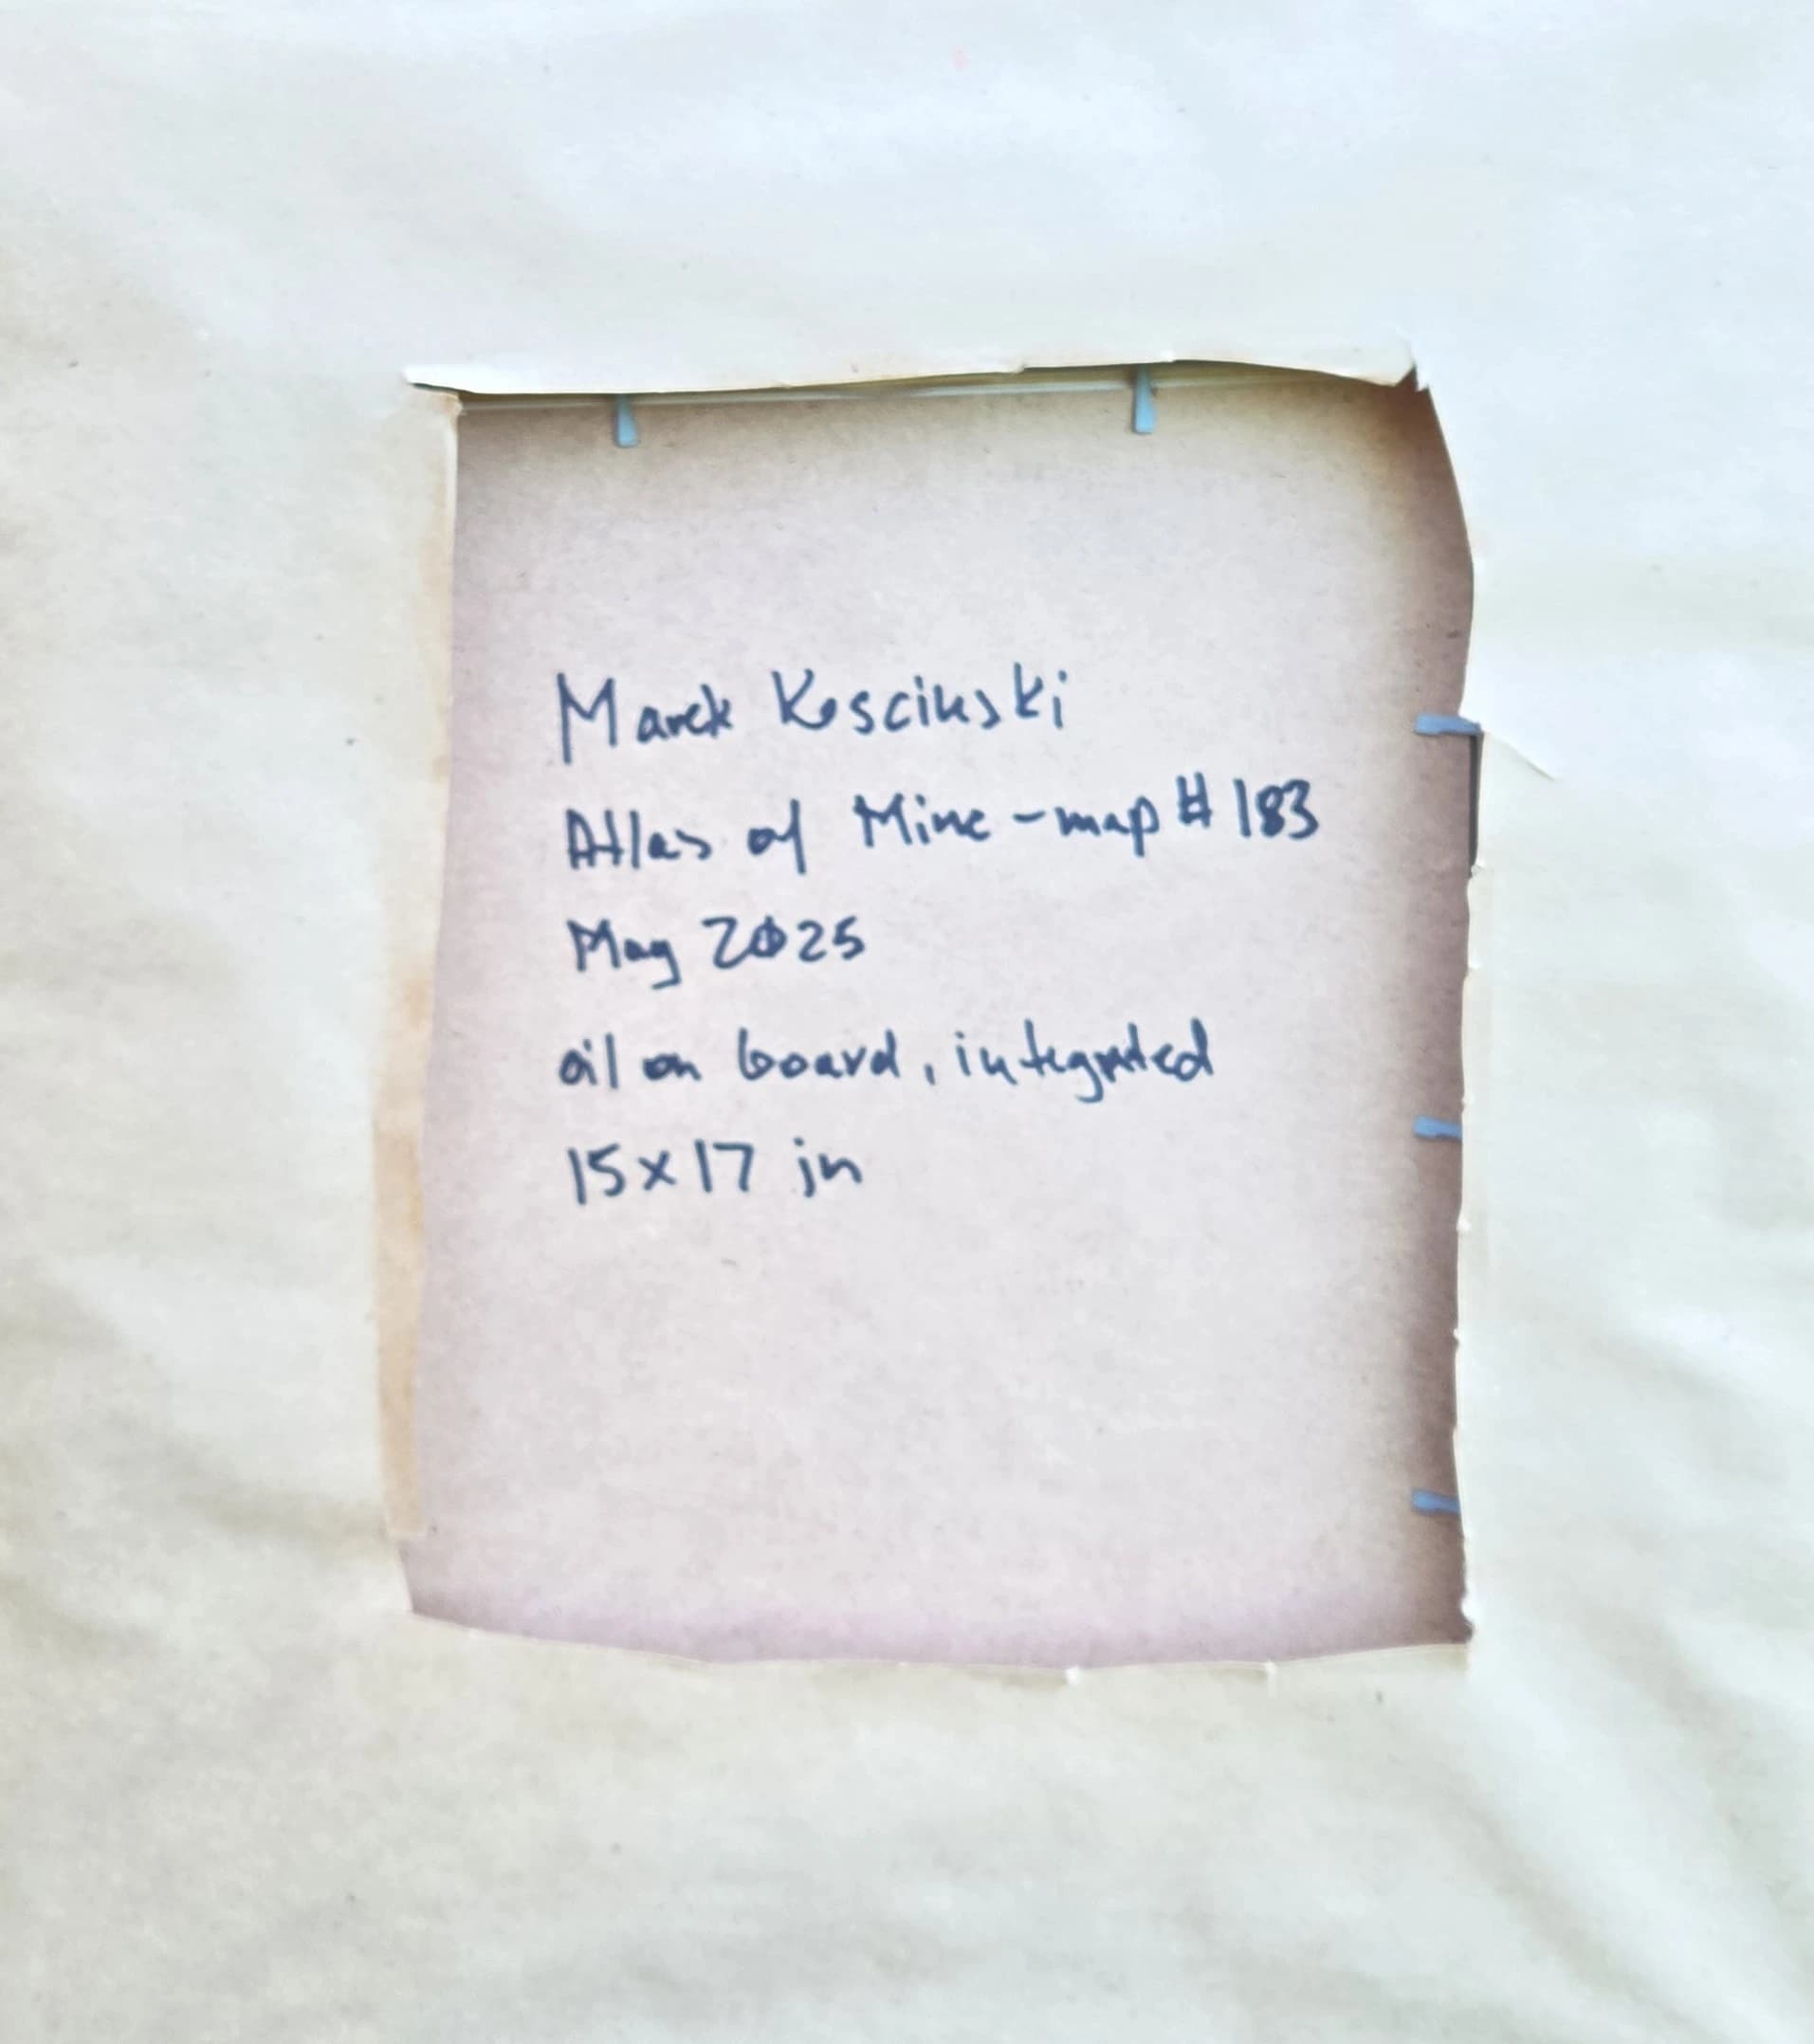 Marek Kosciuski
Atlas of Mine - map # 183
May 2025
oil on board, integrated
15x17 in